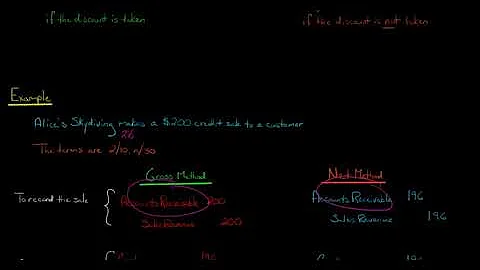 if the discount is taken
if the discount is not taken
Example
Alice's Skydiving makes a $200 credit sale to a customer
2%
The terms are 2/10, n/30
Gross Method
Net Method
To record the sale
Accounts Receivable 200
Accounts Receivable 196
Sales Revenue 200
Sales Revenue 196
196